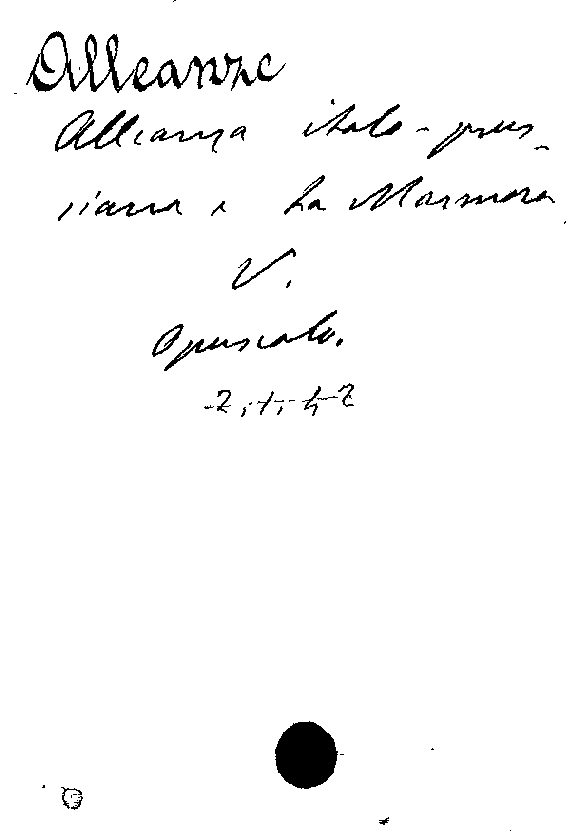 Alleanze
Alleanza italo-prus-
siana e La Marmora
V.
Opuscolo.